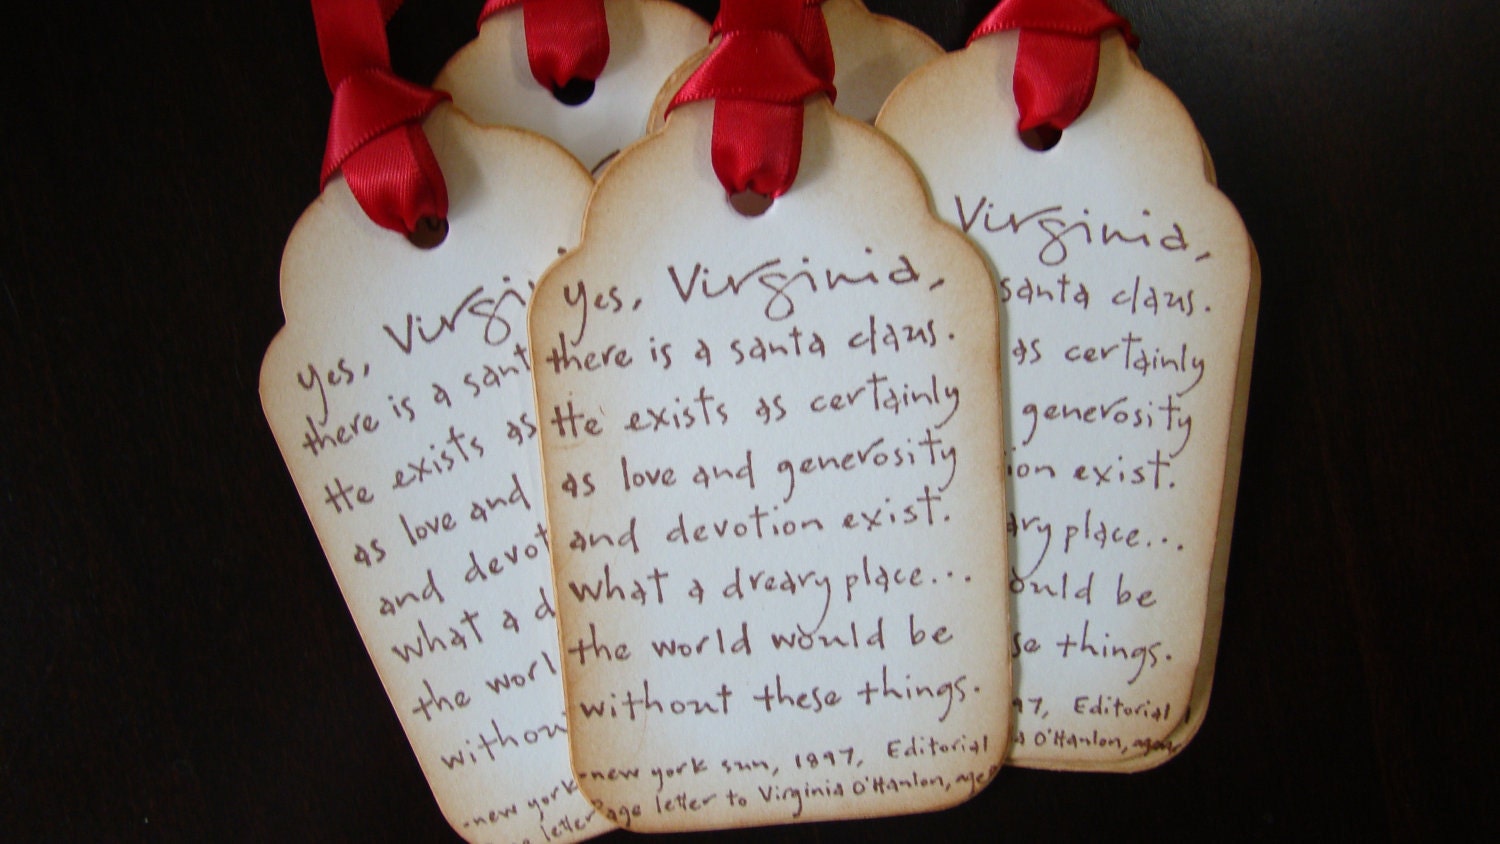 Yes, Virgi
there is a sant
He exists as
as love and
and devot
what a d
the worl
withou
-new york
letter
Yes, Virginia,
there is a santa claus.
He exists as certainly
as love and generosity
and devotion exist.
what a dreary place...
the world would be
without these things.
-new york sun, 1897, Editorial
Page letter to Virginia O'Hanlon, age
Virginia,
santa claus.
as certainly
generosity
ion exist.
ary place...
ould be
se things.
97, Editorial
O'Hanlon, age